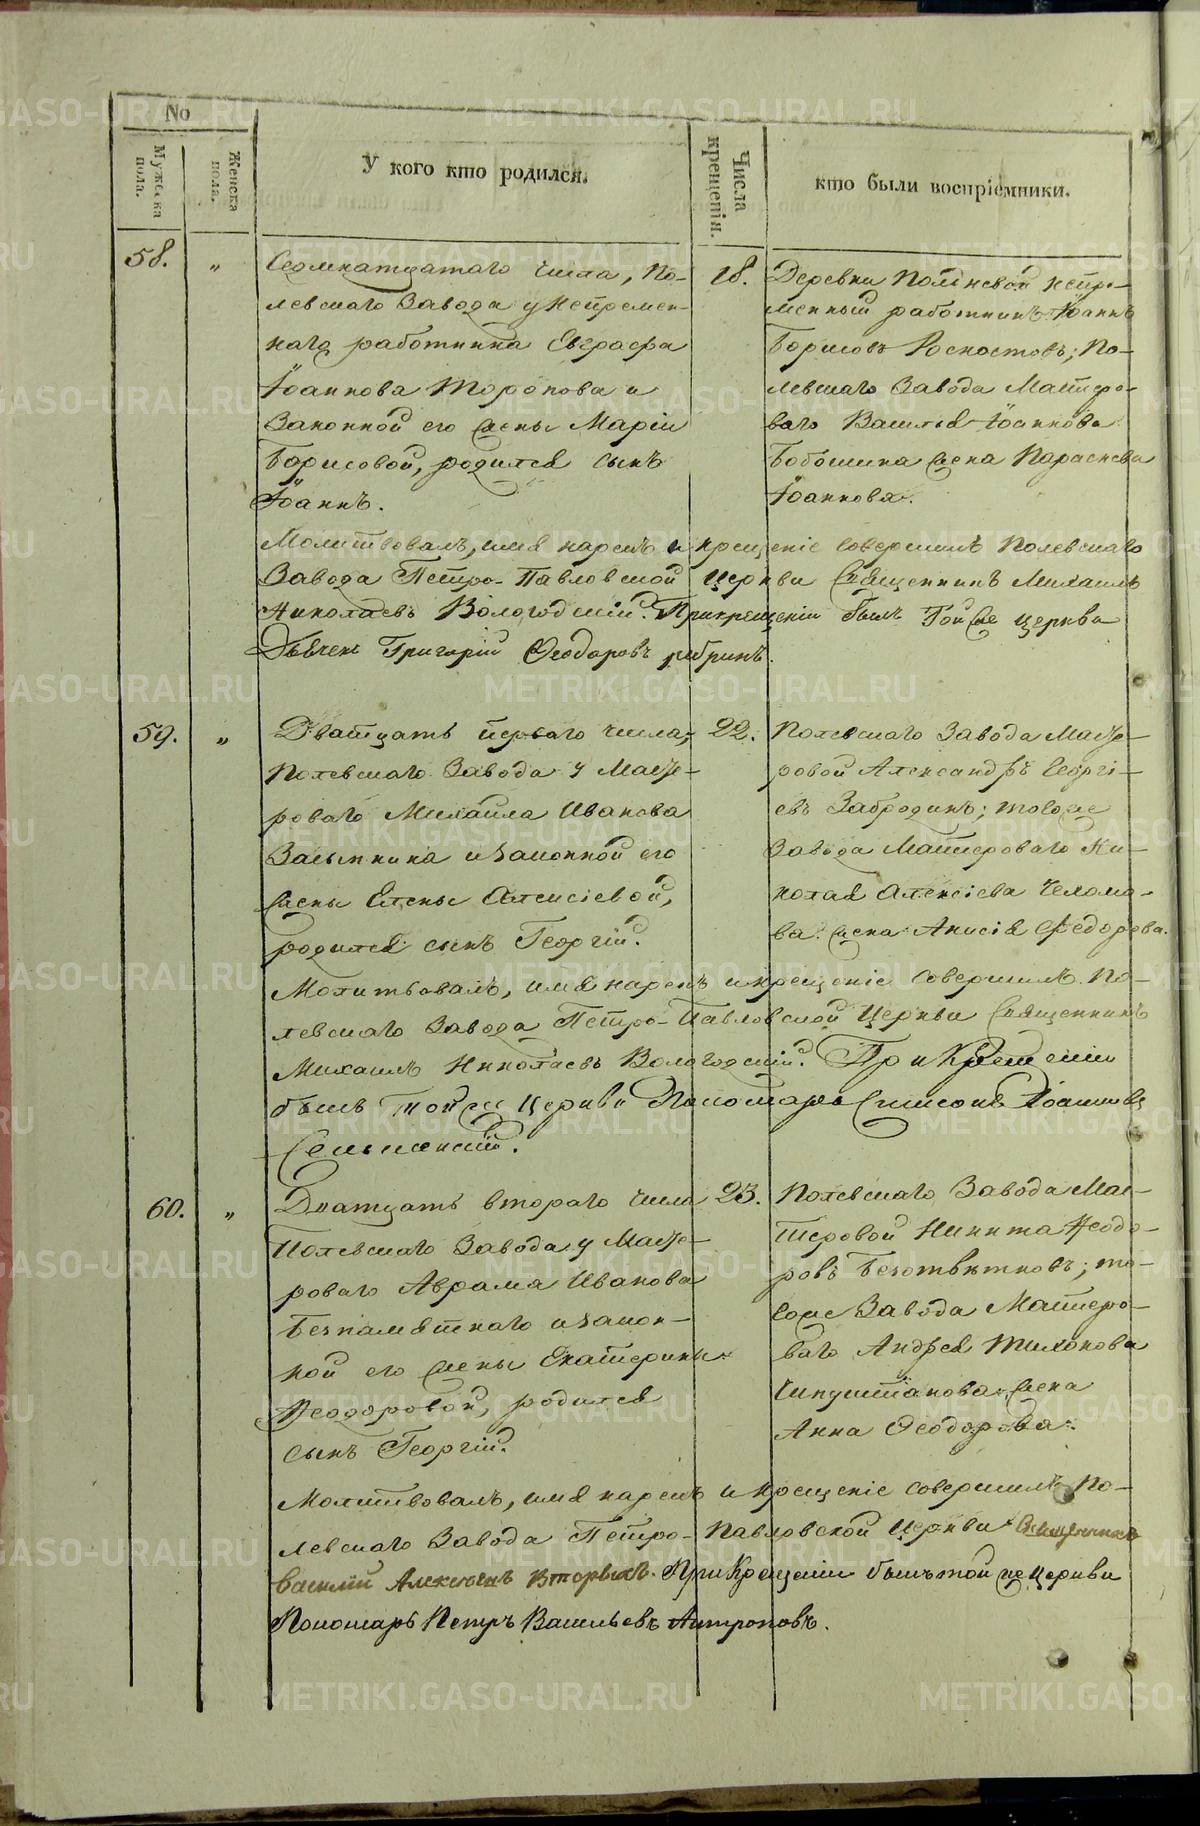 No
Мужеска пола.
Женска пола.
У кого кто родился.
Числа крещенія.
кто были воспріемники.
58. „
Седмнатцатаго числа, По-
левскаго Завода у Непремен-
наго работника Евграфа
Іоаннова Торопова и
Законной его жены Маріи
Борисовой, родился сынъ
Іоаннъ.
18.
Деревни Полдневой непре-
менный работникъ Іоаннъ
Борисовъ; По-
левскаго Завода Мастеро-
ваго Василья Іоаннова
Бабошина жена Параскева
Іоаннова.
Молитвовалъ, имя нарекъ и крещеніе совершилъ Полевскаго
Завода Петро-Павловской церкви Священникъ Михаилъ
Николаевъ Вологодскій. При крещеніи былъ Той же церкви
Дьячекъ Григорій Феодоровъ
59. „
Дватцать перваго числа,
Полевскаго Завода у Масте-
роваго Михайла Иванова
Засыпкина и законной его
жены Елены Алексіевой,
родился сынъ Георгій.
22.
Полевскаго Завода Масте-
ровой Александръ Георгі-
евъ Забродинъ; тогоже
Завода Мастероваго Ни-
колая Алексіева
жена Анисія Федорова.
Молитвовалъ, имя нарекъ и крещеніе совершилъ По-
левскаго Завода Петро-Павловской Церкви Священникъ
Михаилъ Николаевъ Вологодскій. При Крещеніи
былъ той же Церкви Пономарь Симеонъ Іоанновъ
60. „
Дватцать втораго числа
Полевскаго Завода у Масте-
роваго Аврама Иванова
Безпамятнаго и закон-
ной его жены Екатерины
Феодоровой, родился
сынъ Георгій.
23.
Полевскаго Завода Мас-
теровой Никита Феодо-
ровъ Безответновъ; то-
гоже Завода Мастеро-
ваго Андрея Тихонова
жена
Анна Феодорова.
Молитвовалъ, имя нарекъ и крещеніе совершилъ По-
левскаго Завода Петро-Павловской Церкви Священникъ
Василій Алексіевъ Вторыхъ. При Крещеніи былъ той же церкви
Пономарь Петръ Васильевъ Антроповъ.
METRIKI.GASO-URAL.RU